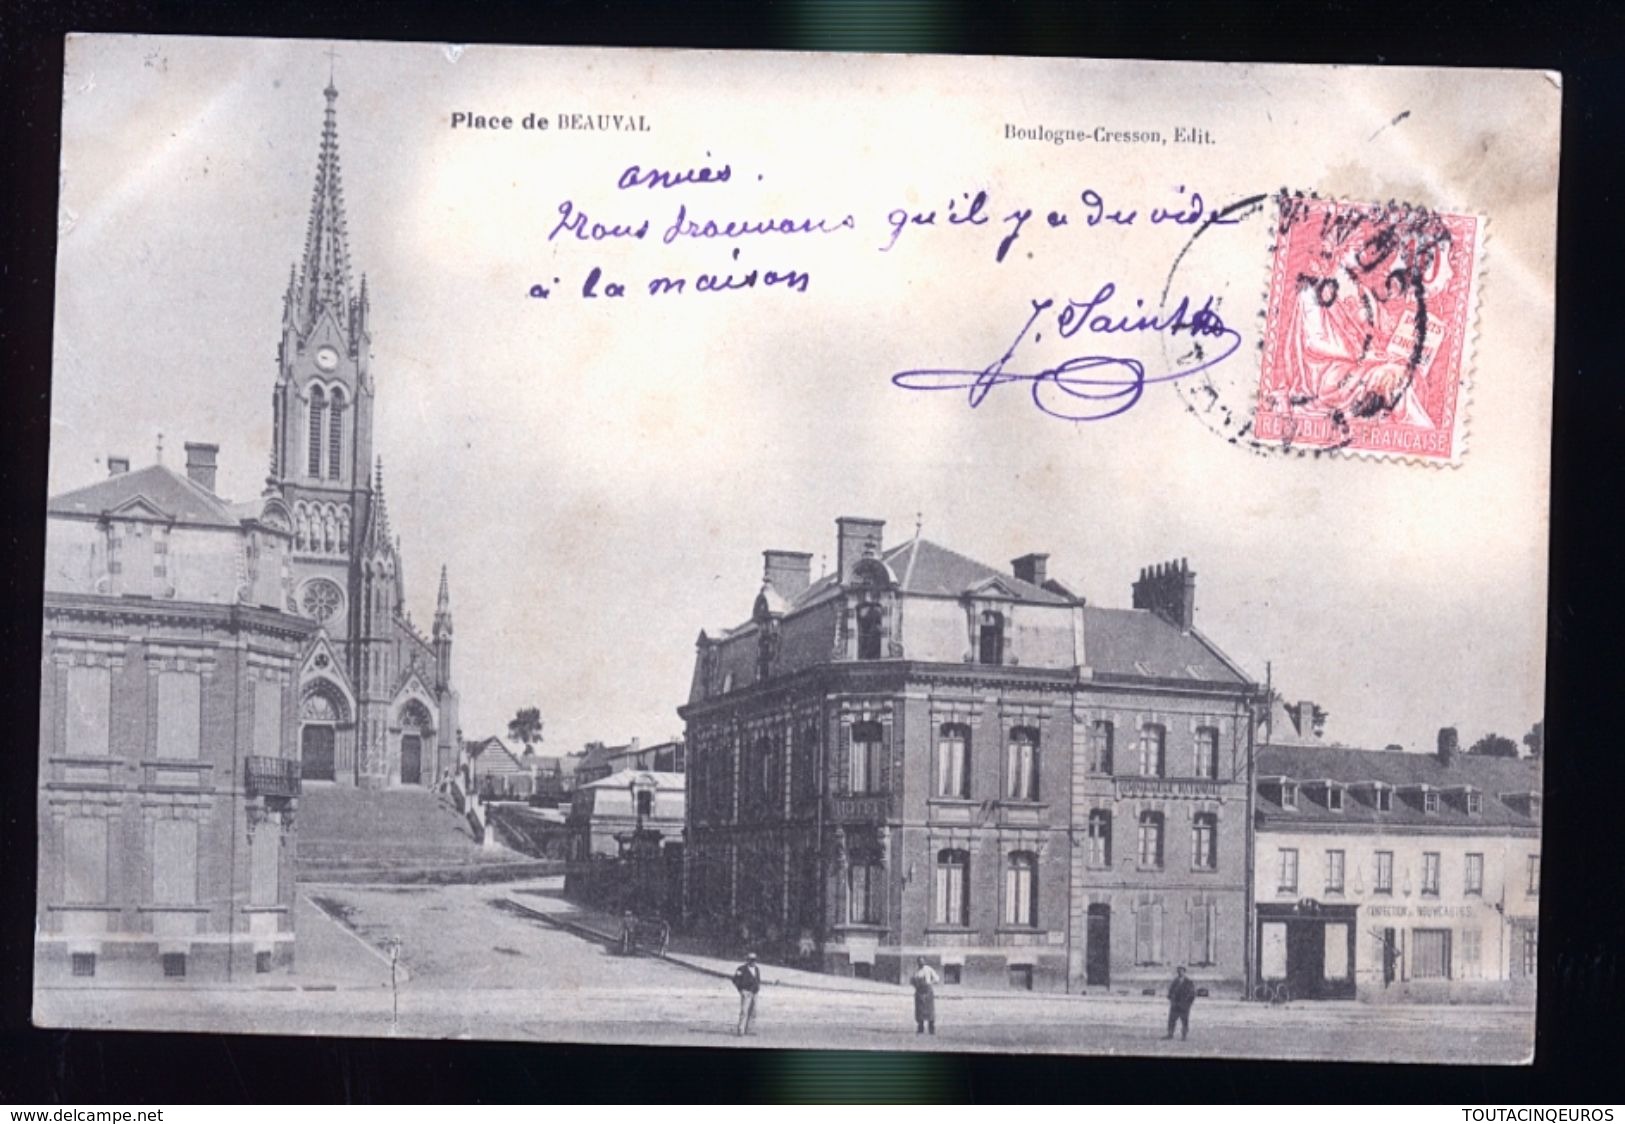 Place de BEAUVAL
Boulogne-Cresson, Edit.
amies.
Nous trouvons qu'il y a du vide
à la maison
J. Saint
REPUBLIQUE FRANÇAISE
GENDARMERIE NATIONALE
HOTEL
CONFECTION & NOUVEAUTES
www.delcampe.net
TOUTACINQEUROS